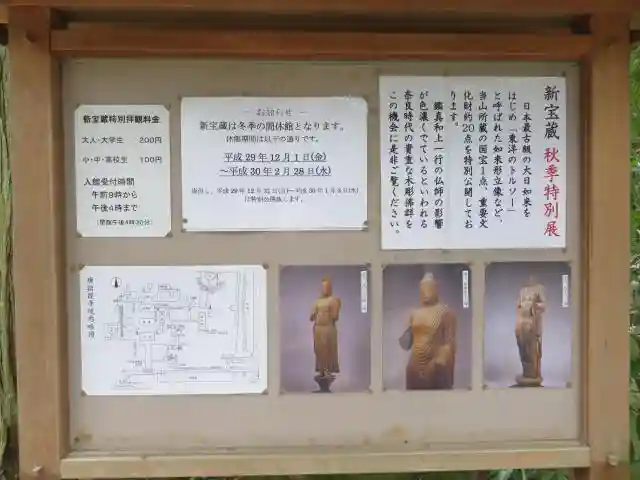 新宝蔵特別拝観料金
大人・大学生 200円
小・中・高校生 100円
入館受付時間
午前9時から
午後4時まで
(閉館午後4時30分)
― お知らせ ―
新宝蔵は冬季の間休館となります。
休館期間は以下の通りです。
平成29年12月1日(金)
～平成30年2月28日(水)
新宝蔵 秋季特別展
日本最古級の大日如来を
はじめ「東洋のトルソー」
と呼ばれた如来形立像など、
当山所蔵の国宝1点、重要文
化財約20点を特別公開してお
ります。
鑑真和上一行の仏師の影響
が色濃くでているといわれる
奈良時代の貴重な木彫佛群を
この機会に是非ご覧ください。